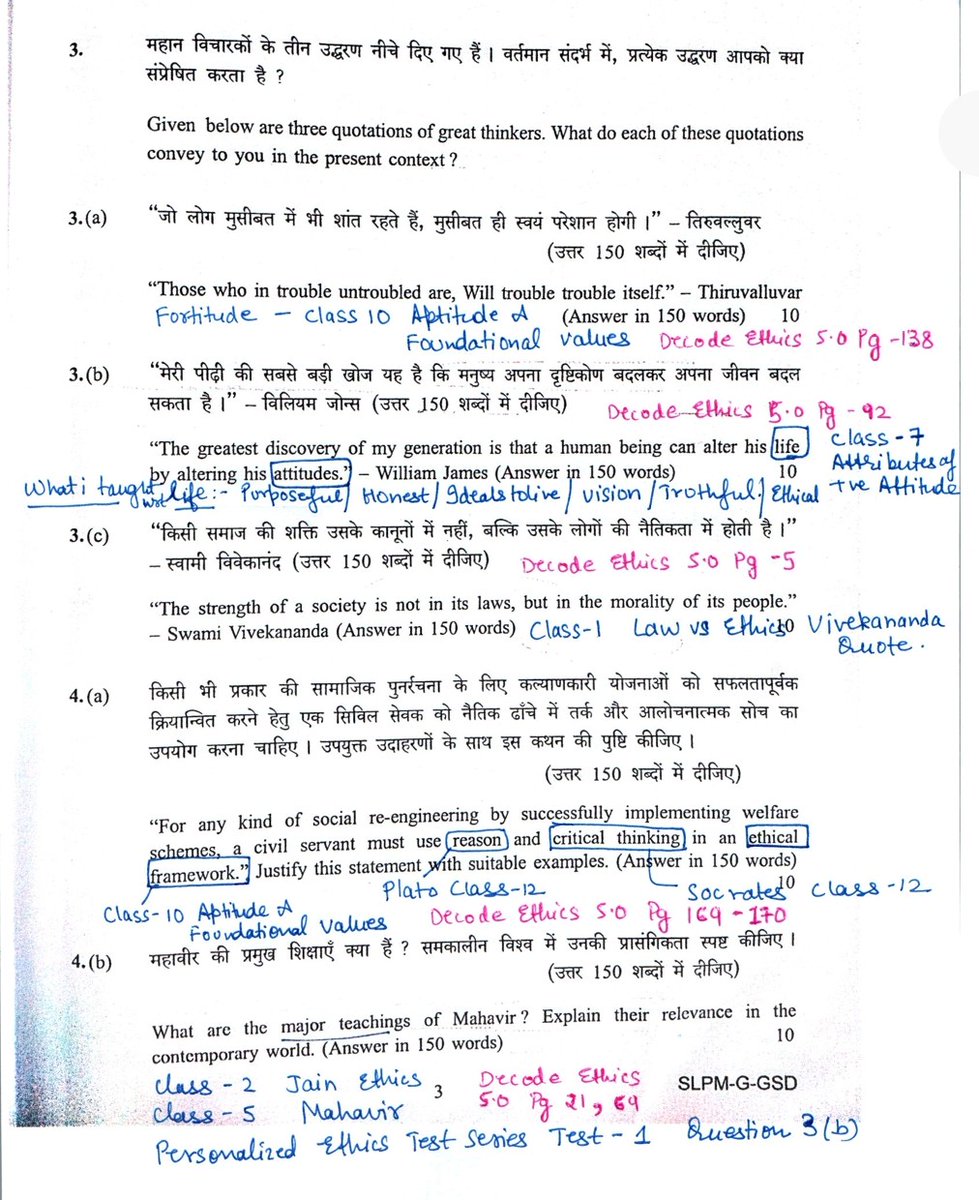 3. महान विचारकों के तीन उद्धरण नीचे दिए गए हैं । वर्तमान संदर्भ में, प्रत्येक उद्धरण आपको क्या
संप्रेषित करता है ?
Given below are three quotations of great thinkers. What do each of these quotations
convey to you in the present context ?
3.(a) “जो लोग मुसीबत में भी शांत रहते हैं, मुसीबत ही स्वयं परेशान होगी ।” – तिरुवल्लुवर
(उत्तर 150 शब्दों में दीजिए)
“Those who in trouble untroubled are, Will trouble trouble itself.” – Thiruvalluvar
Fortitude – Class 10 Aptitude & (Answer in 150 words) 10
Foundational values Decode Ethics 5.0 Pg -138
3.(b) “मेरी पीढ़ी की सबसे बड़ी खोज यह है कि मनुष्य अपना दृष्टिकोण बदलकर अपना जीवन बदल
सकता है ।” – विलियम जोन्स (उत्तर 150 शब्दों में दीजिए) Decode Ethics 5.0 Pg - 92
“The greatest discovery of my generation is that a human being can alter his life Class - 7
by altering his attitudes.” – William James (Answer in 150 words) 10 Attributes of
What i taught wrt life :- Purposeful / Honest / Ideals to live / vision / Truthful / Ethical +ve Attitude
3.(c) “किसी समाज की शक्ति उसके कानूनों में नहीं, बल्कि उसके लोगों की नैतिकता में होती है ।”
– स्वामी विवेकानंद (उत्तर 150 शब्दों में दीजिए) Decode Ethics 5.0 Pg -5
“The strength of a society is not in its laws, but in the morality of its people.”
– Swami Vivekananda (Answer in 150 words) Class-1 Law vs Ethics 10 Vivekananda
Quote.
4.(a) किसी भी प्रकार की सामाजिक पुनर्रचना के लिए कल्याणकारी योजनाओं को सफलतापूर्वक
क्रियान्वित करने हेतु एक सिविल सेवक को नैतिक ढाँचे में तर्क और आलोचनात्मक सोच का
उपयोग करना चाहिए । उपयुक्त उदाहरणों के साथ इस कथन की पुष्टि कीजिए ।
(उत्तर 150 शब्दों में दीजिए)
“For any kind of social re-engineering by successfully implementing welfare
schemes, a civil servant must use reason and critical thinking in an ethical
framework.” Justify this statement with suitable examples. (Answer in 150 words)
10
Plato Class-12 Socrates Class-12
Class-10 Aptitude & Decode Ethics 5.0 Pg 169 - 170
Foundational values
4.(b) महावीर की प्रमुख शिक्षाएँ क्या हैं ? समकालीन विश्व में उनकी प्रासंगिकता स्पष्ट कीजिए ।
(उत्तर 150 शब्दों में दीजिए)
What are the major teachings of Mahavir ? Explain their relevance in the
contemporary world. (Answer in 150 words) 10
Class - 2 Jain Ethics Decode Ethics
3 SLPM-G-GSD
Class - 5 Mahavir 5.0 Pg 21, 69
Personalized Ethics Test Series Test - 1 Question 3(b)